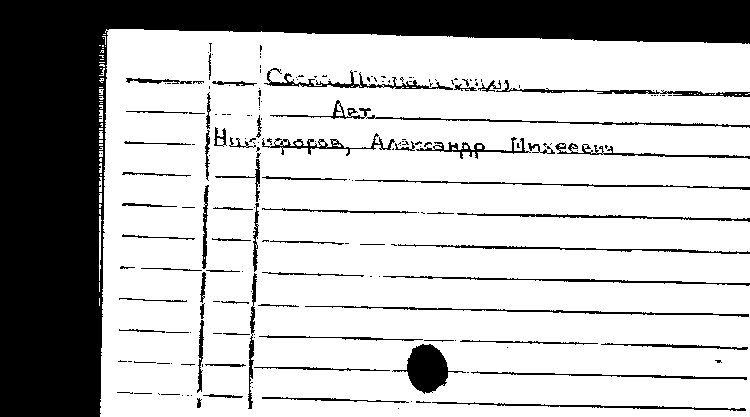 Сосна. Поэма и стихи.
Авт.
Никифоров, Александр Михеевич